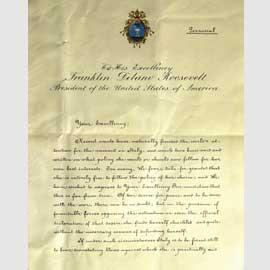 Personal
To His Excellency
Franklin Delano Roosevelt
President of the United States of America.
Your Excellency:
Recent events have naturally focused the world's at-
tention for the moment on Italy, and much has been said and
written on what policy she would or should now follow for her
own best interests. Too many, We fear, take for granted that
she is entirely free to follow the policy of her choice; and We
have wished to express to Your Excellency Our conviction that
this is far from true. Of her desire for peace and to be done
with the war, there can be no doubt; but in the presence of
formidable forces opposing the actuation or even the official
declaration of that desire she finds herself shackled and quite
without the necessary means of defending herself.
If under such circumstances Italy is to be forced still
to bear devastating blows against which she is practically de-